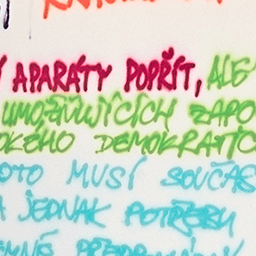 Í APARÁTY POPŘÍT, ALE
UMOŽŇUJÍCÍCH ZAPO
OKÉHO DEMOKRATIC
OTO MUSÍ SOUČAS
A JEDNAK POTŘEBU